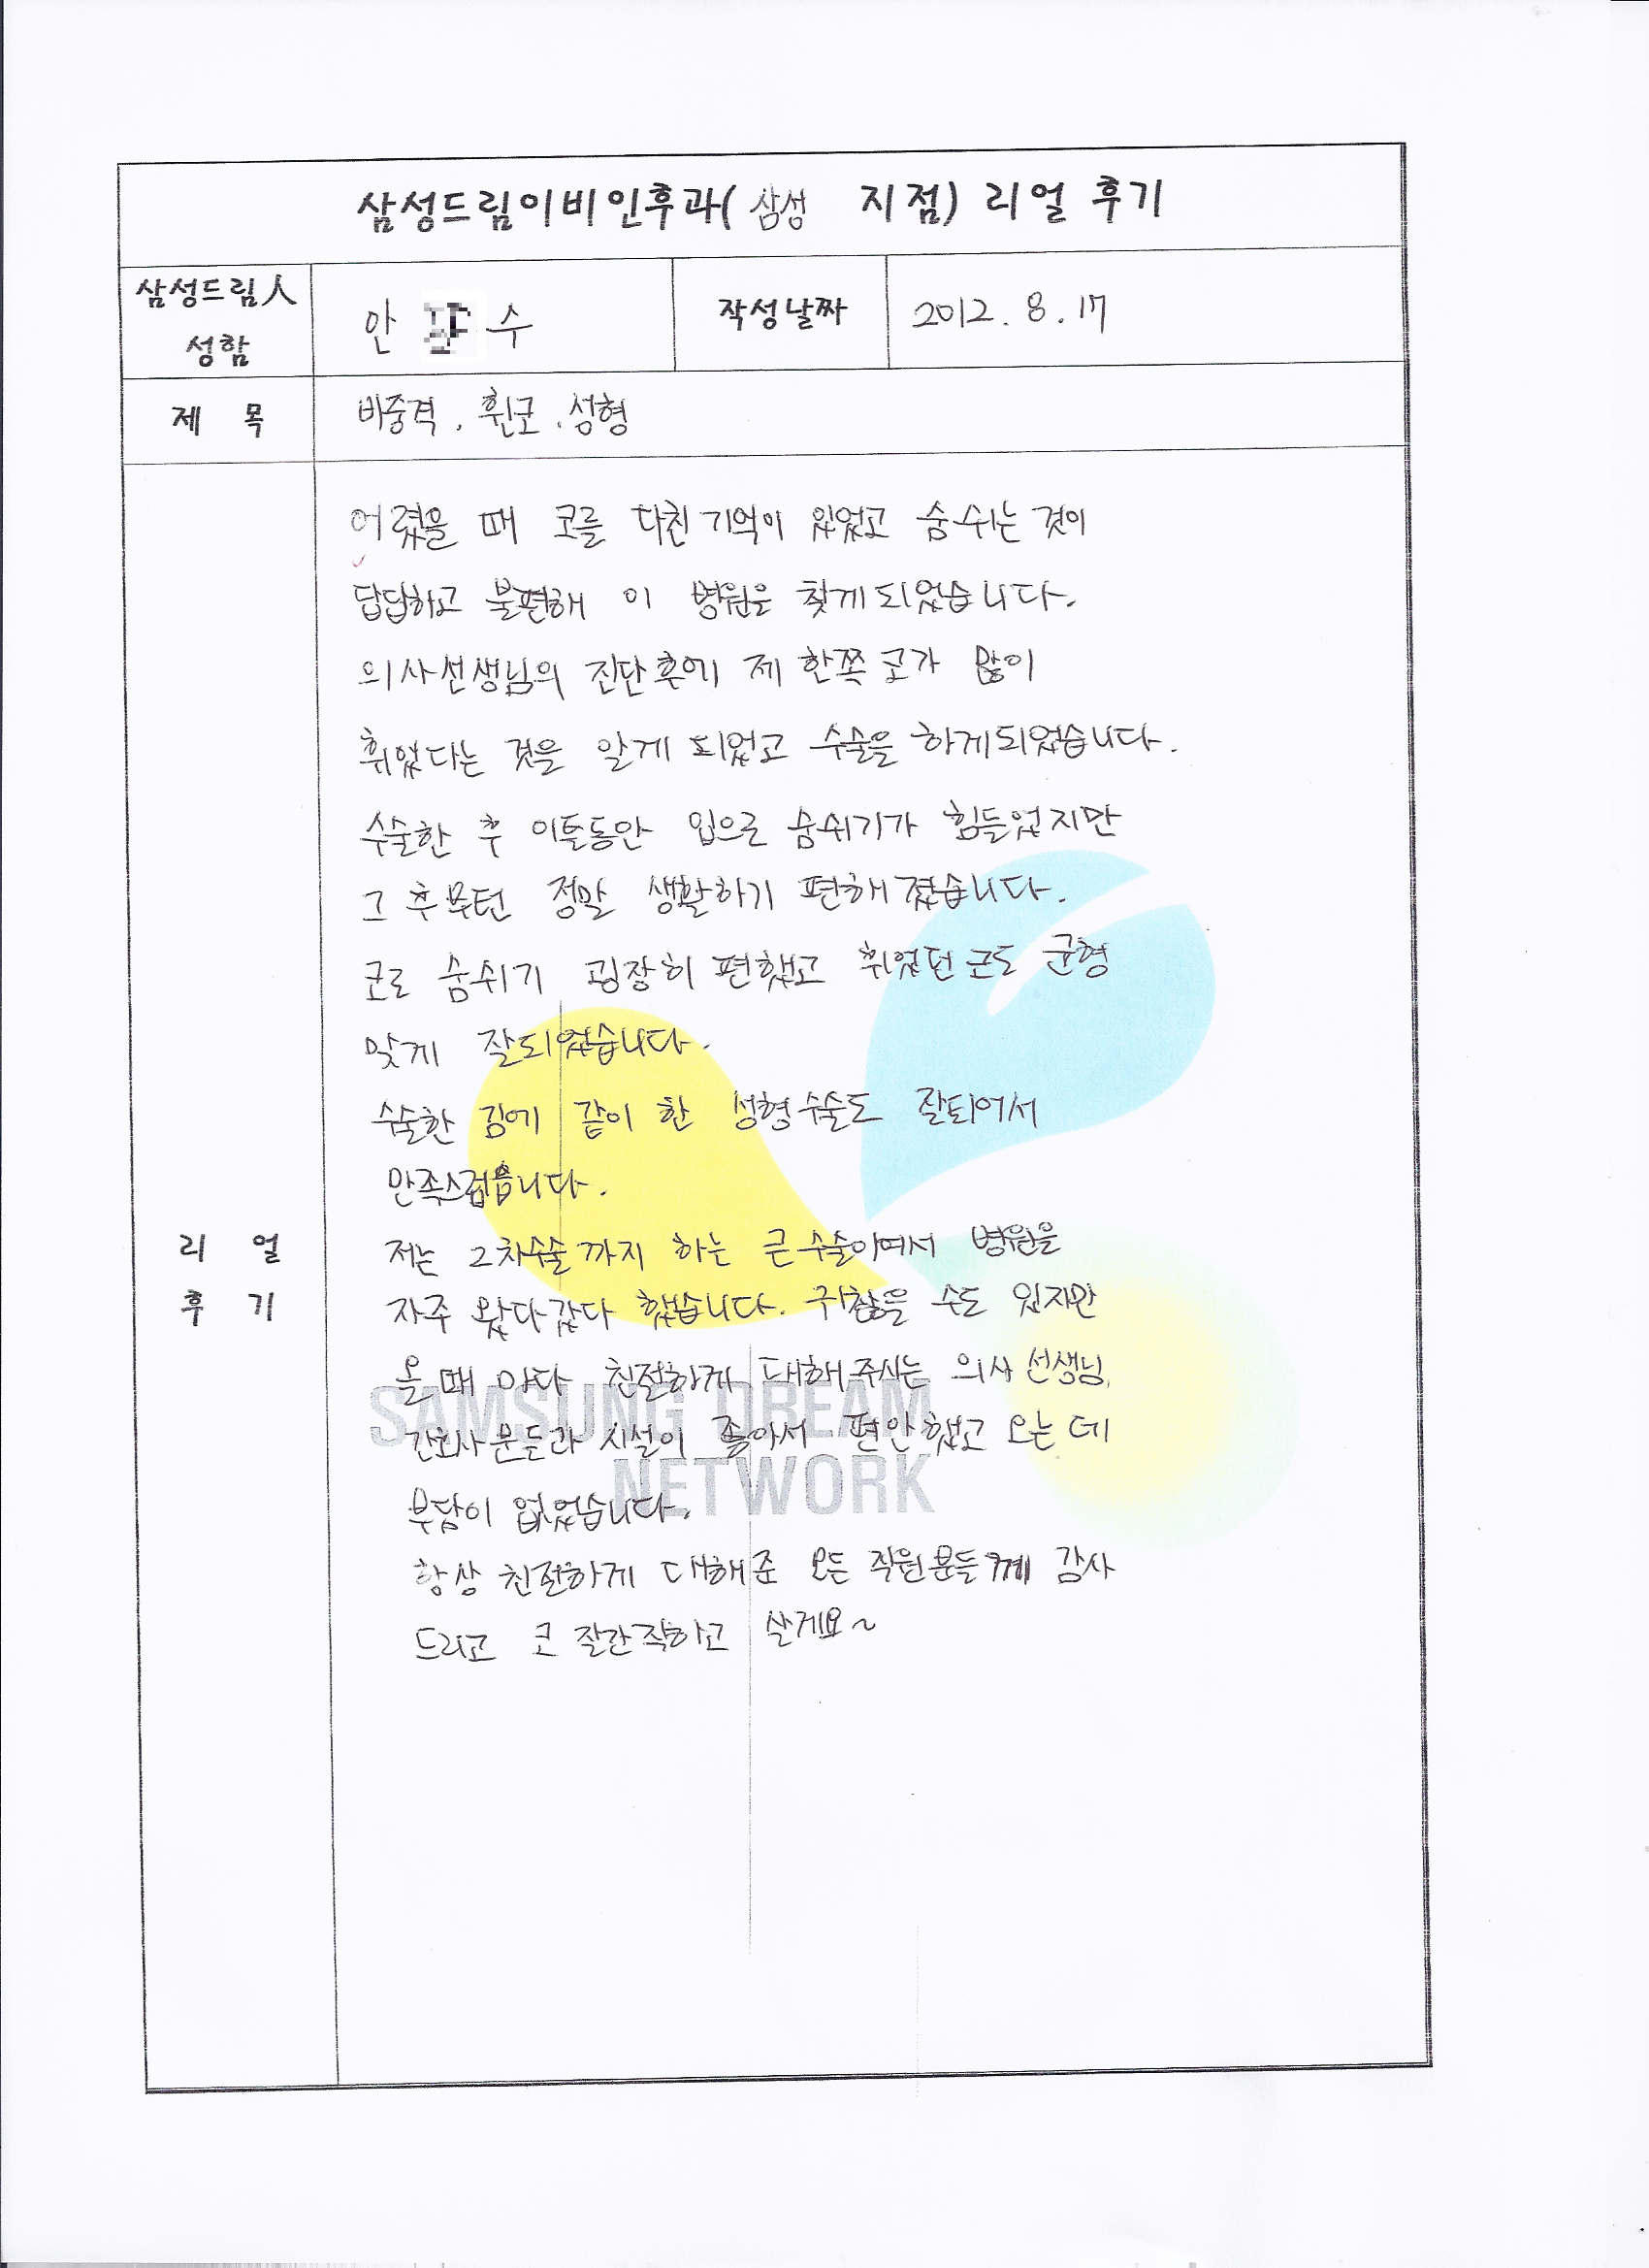 삼성드림이비인후과( 삼성 지점) 리얼 후기
삼성드림人
성함
안 수
작성날짜
2012. 8. 17
제 목
비중격. 휜코. 성형
어렸을 때 코를 다친 기억이 있었고 숨쉬는 것이
답답하고 불편해 이 병원을 찾게되었습니다.
의사선생님의 진단후에 제 한쪽 코가 많이
휘었다는 것을 알게 되었고 수술을 하게되었습니다.
수술한 후 이틀동안 입으로 숨쉬기가 힘들었지만
그 후부턴 정말 생활하기 편해졌습니다.
코로 숨쉬기 굉장히 편했고 휘었던 코도 균형
맞게 잘되었습니다.
수술한 김에 같이 한 성형수술도 잘되어서
만족스럽습니다.
리 얼
후 기
저는 2차수술까지 하는 큰수술이여서 병원을
자주 왔다갔다 했습니다. 귀찮을 수도 있지만
올 때 마다 친절하게 대해주시는 의사선생님,
간호사분들과 시설이 좋아서 편안했고 오는 데
부담이 없었습니다.
항상 친절하게 대해준 모든 직원분들께 감사
드리고 코 잘간직하고 살게요~
SAMSUNG DREAM
NETWORK